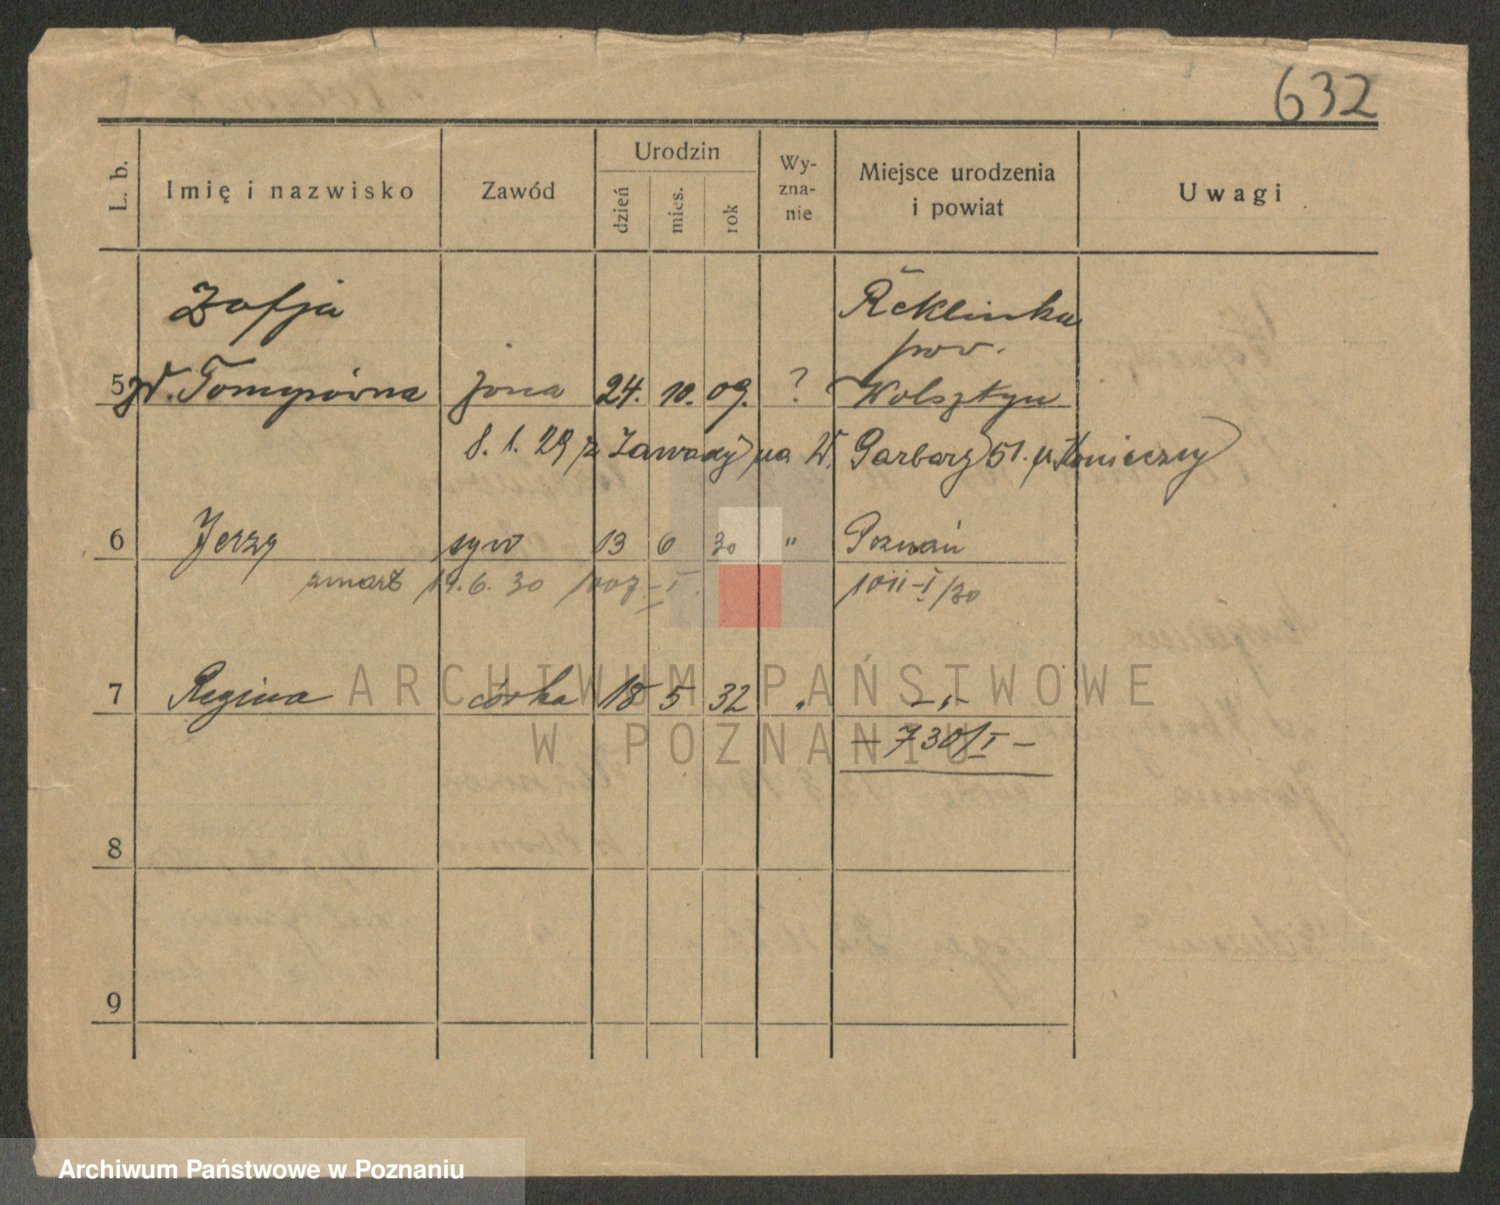 632
L. b.
Imię i nazwisko
Zawód
Urodzin
dzień
mies.
rok
Wy-
zna-
nie
Miejsce urodzenia
i powiat
Uwagi
Zofja
Reklinka
pow.
5 żona 24. 10. 09. ? Wolsztyn
8. 1. 29 z Zawady na W. Garbary 51.
6 Jerzy syn 13 6 30 " Poznań
zmarł 19. 6. 30
1011-I/30
7 Regina córka 18 5 32 -„-
- 730/I -
8
9
ARCHIWUM PAŃSTWOWE
W POZNANIU
Archiwum Państwowe w Poznaniu